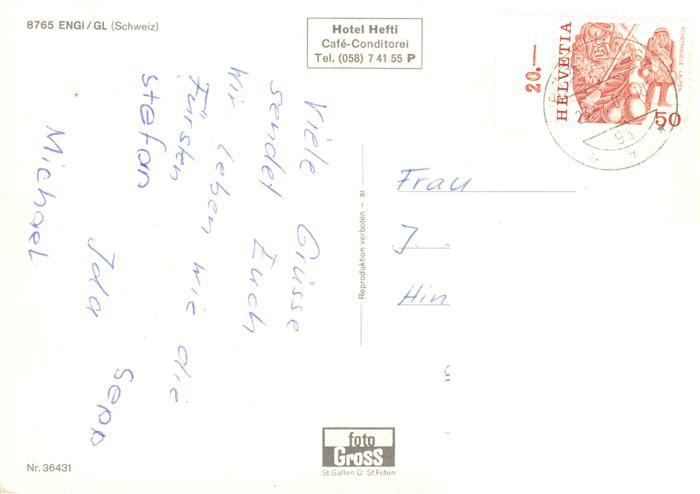 8765 ENGI/GL (Schweiz)
Hotel Hefti
Café-Conditorei
Tel. (058) 7 41 55 P
20.—
HELVETIA
50
Viele Grüsse
sendet Euch
Wir leben wie die
Fürsten
Stefan
Sepp
Ida
Michael
Reproduktion verboten – si
Frau
J.
Hin
foto
Gross
St.Gallen O St.Fiden
Nr. 36431